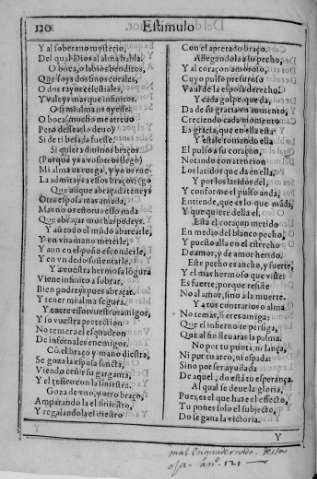 120 Estimulo
Y al soberano mysterio,
Del qual Dios al alma habla:
O boca, o labios benditos,
Que soys dos finos corales,
O dos rayos celestiales,
Y vale y a marque infinitos.
O si fuera mi oy esse
O boca mucho me atreuo
Pero desseallo deuo
Si de ti besada fuesse.
Si quiera diuinos braços
(Porque ya a vosotros llego)
Mi alma os ruega, y yo os ruego
La admitays a essos braços
Que aunque abraçada tengays
Otra esposa mas amada,
Mas no os estorua essotra nada
Que abraçar mucha podeys.
Y a todo el mũdo abarcarle,
Y en vna mano meterle,
Y aun en el puño esconderle,
Y en vn dedo sustentarle.
Y a vuestra hermosa lõgura
Viene infinito a sobrar,
Bien podreys pues abraçar,
Y tener mi alma segura.
Y entre essos vuestros amigos,
Y so vuestra protection
No temera el esquadron
De infernales enemigos.
Cõ el braço y mano diestra,
Se goza la esposa sancta,
Viendo ceñir su garganta,
Y el teso con la siniestra.
Goza de vno, y otro braço,
Amparando la el siniestro,
Y regalando la el diestro
Con el apretado braço.
Allegando la a su pecho,
Y al coraçon amoroso,
Cuyo pulso presuroso
Va al de la esposa derecho.
Y cada golpe que da,
Da de su gracia vn aumento,
Creciendo cada momento
La gracia, que en ella esta
Y estale tomando ella
El pulso a su coraçon,
Notando con attencion
Los latidos que da en ella,
Y por los latidos del,
Y conforme el pulso anda,
Entiende, que es lo que mãda,
Y que quiere della el,
Esta el coraçon metido
En medio del blanco pecho,
Y puesto alla en el estrecho
De amor, y de amor herido.
Este pecho es ancho, y fuerte,
Y el mas hermoso que viste:
Es fuerte, porque resiste
No al amor, sino a la muerte.
Y a tus contrarios o alma
No temas, si eres amiga:
Que el infierno te persiga,
Que al fin lleuaras la palma.
No por tu punta, ni lança,
Ni por tu arco, ni espada:
Sino por ser ayudada
De aquel, do està tu esperança.
Al qual se deue la gloria,
Pues, es el que haze el effecto,
Tu pones solo el subjecto,
Do se gana la victoria.
Y
mal Enquadernado. desta
oja. año. 121